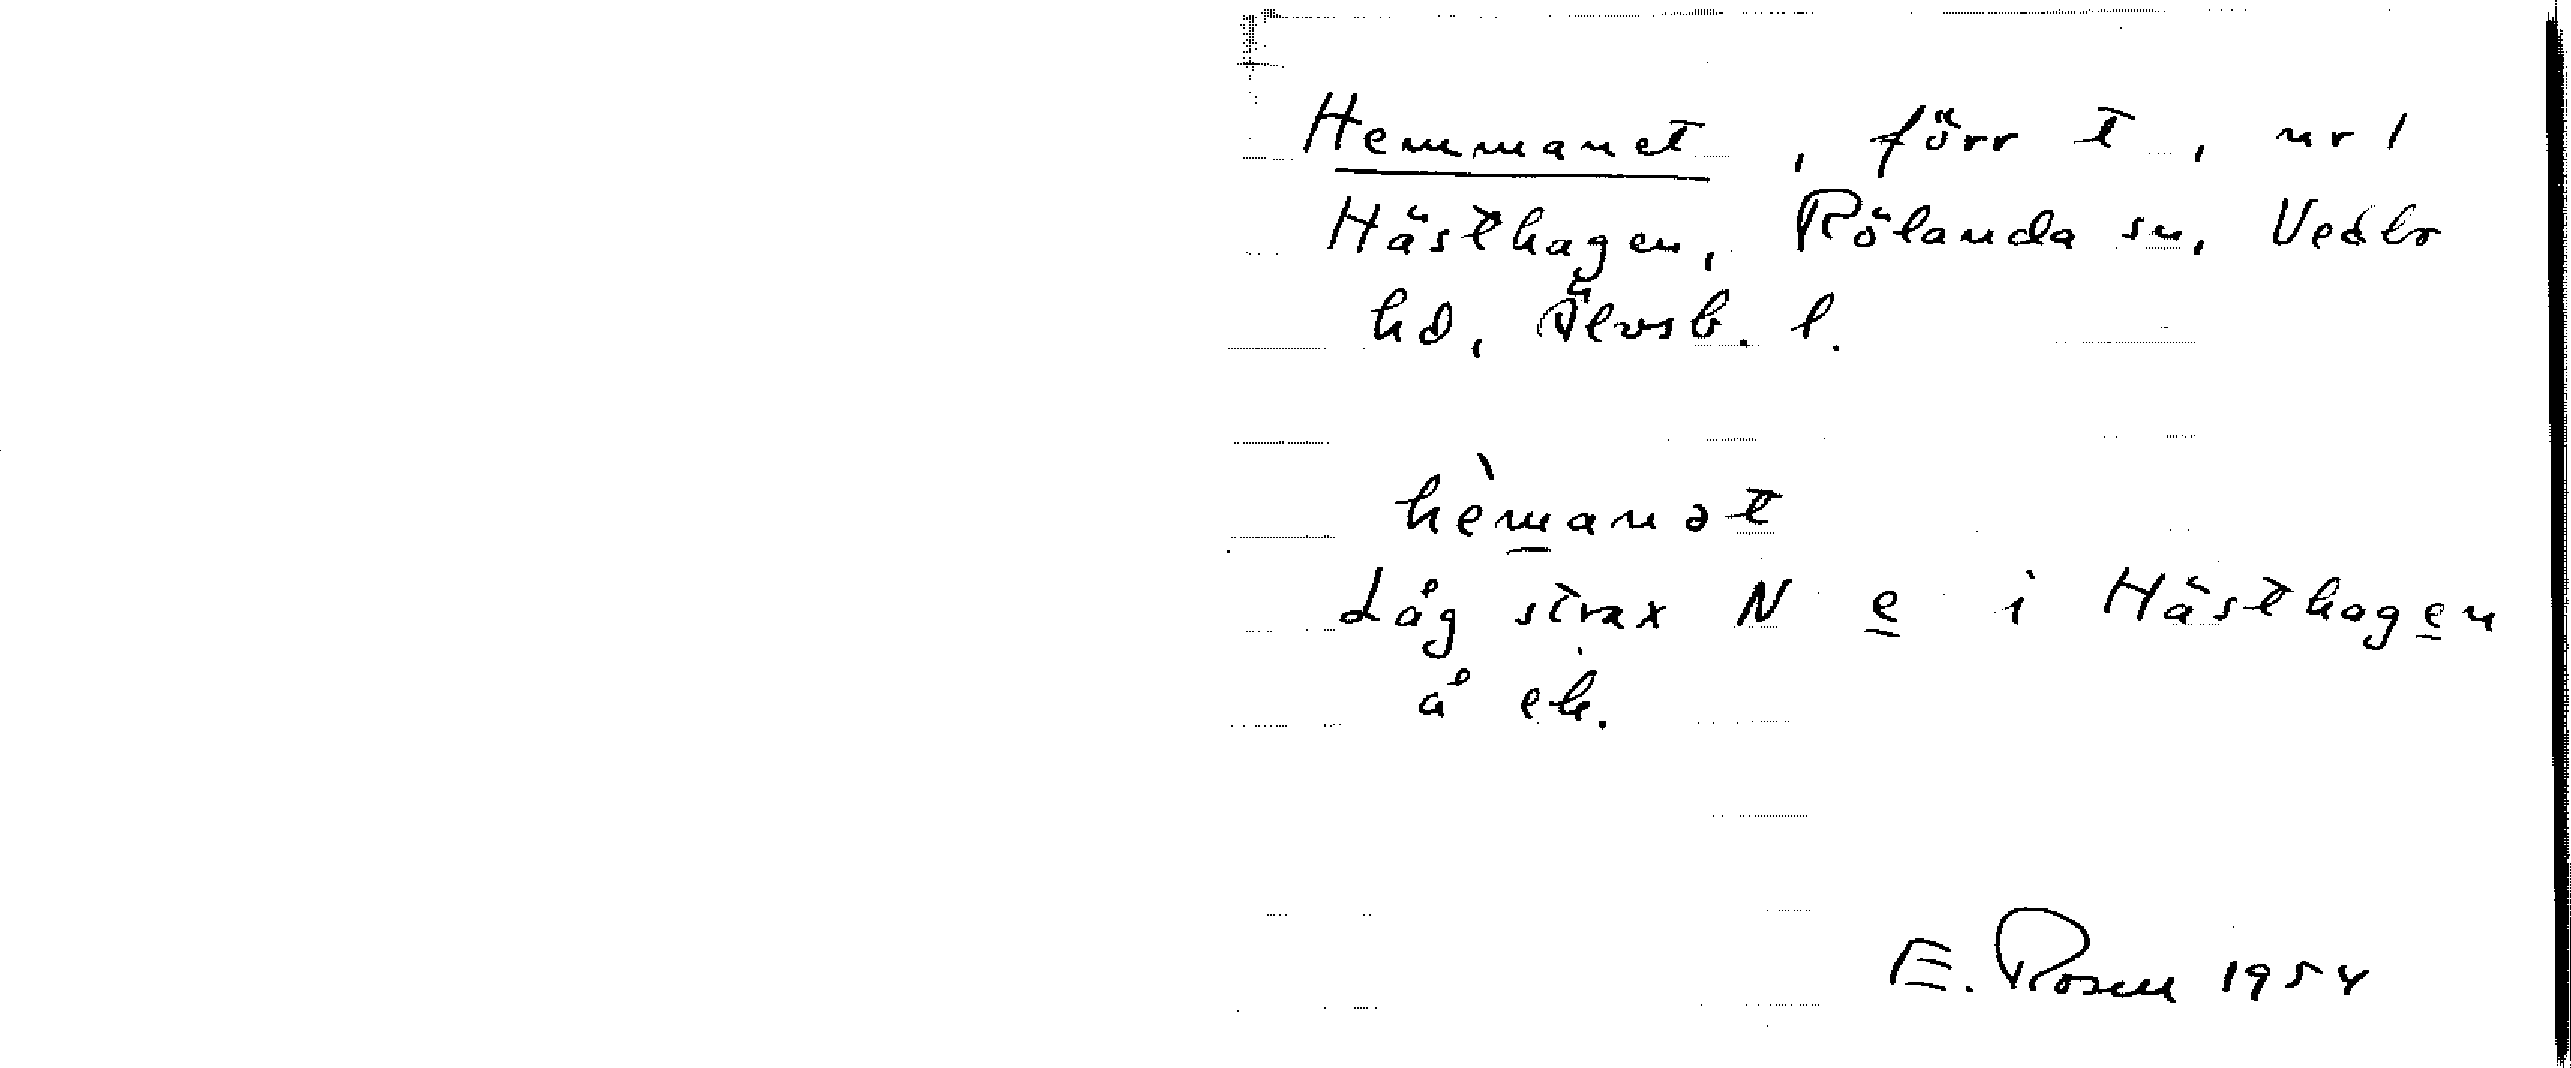 Hemmanet, förr t, nr 1
Hästhagen, Rölanda sn, Vedbo
hd, Älvsb. l.
hèmanət
Låg strax N e i Hästhagen
å ek.
E. Rosen 1954